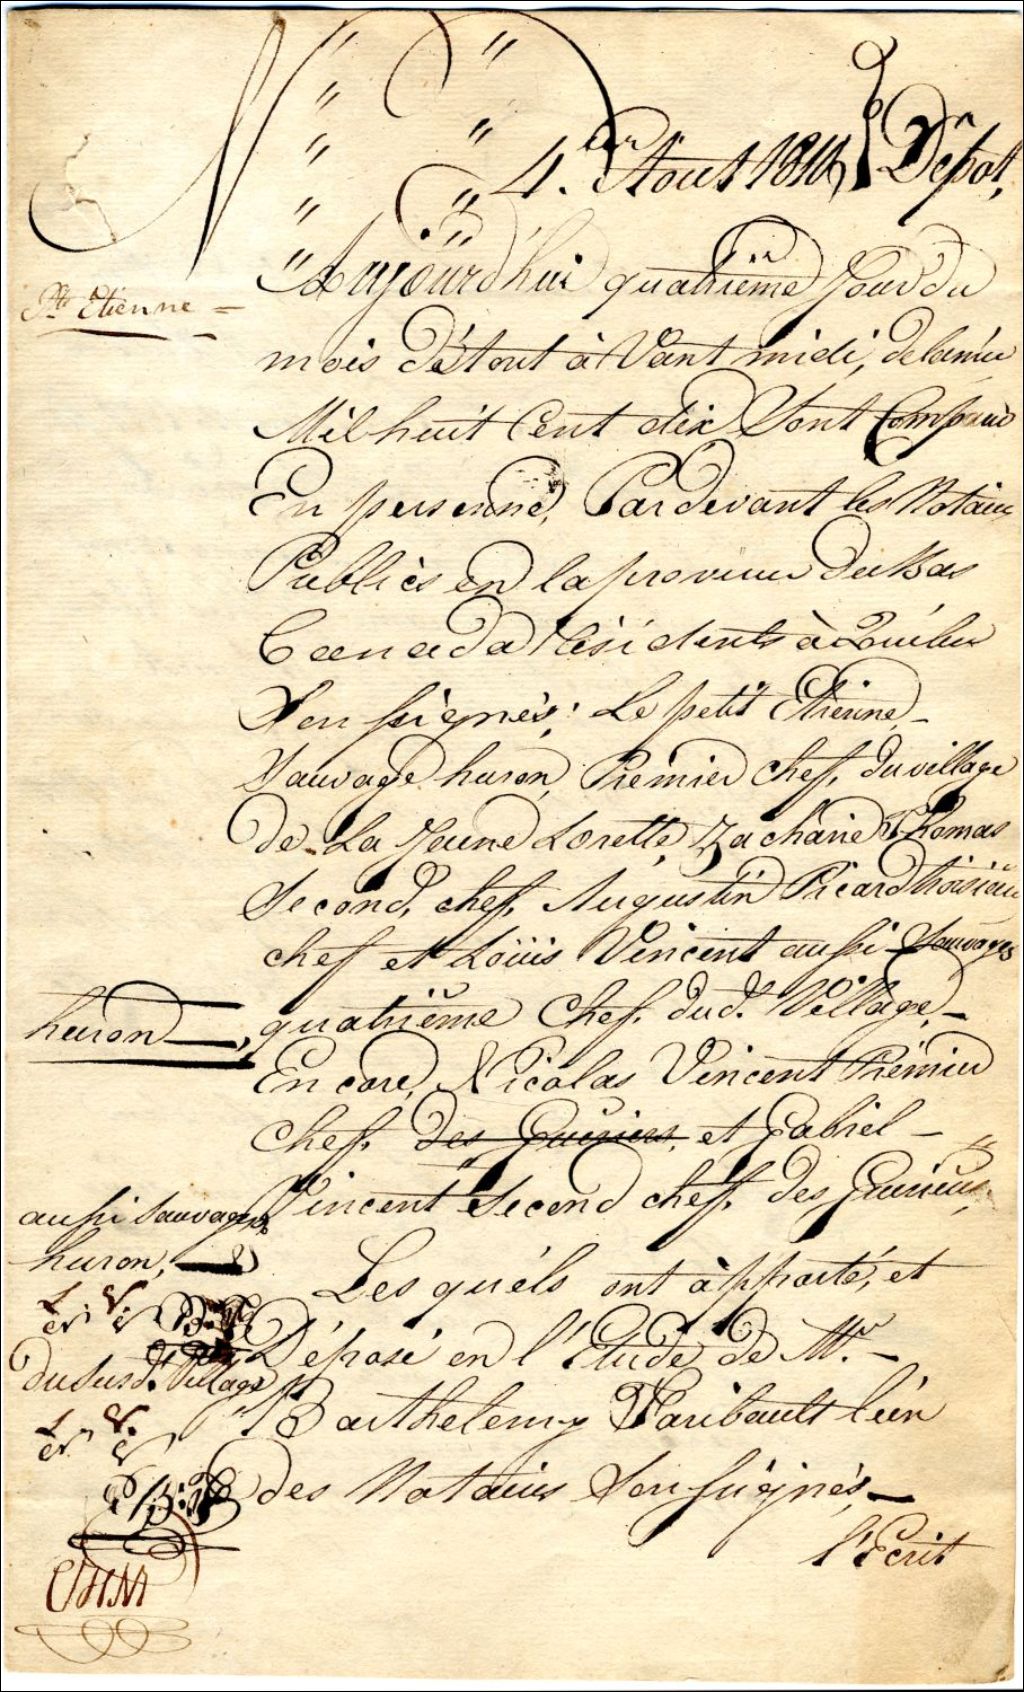 4. Aout 1810 Dépot,
Aujourd'hui quatrième Jour du
Pte Etienne =
mois d'Aout àVant midi, de lannée
Mil huit Cent dix Sont Comparus
En personne, Pardevant les Notaires
Publics en la province du Bas
Canada Résidents à Québec
Soussignés; Le petit Etienne,
Sauvage huron, Premier chef, du village
de La Jeune Lorette, Zacharie Thomas
Second, chef, Augustin Picard troisième
chef et Loüis Vincent aussi Sauvages
huron quatrième Chef. dud. Village,
En core, Nicolas Vincent Prémier
Chef, des Guériers, et Gabriel
Vincent Second chef, des Guériers,
aussi Sauvages
huron,
Les quéls ont àpporté, et
L. V.
Déposé en l'Etude de Mr.
du Susd. Village
Barthelemy Faribault l'ún
L. V.
des Notaires Soussignés,
l'Ecrit